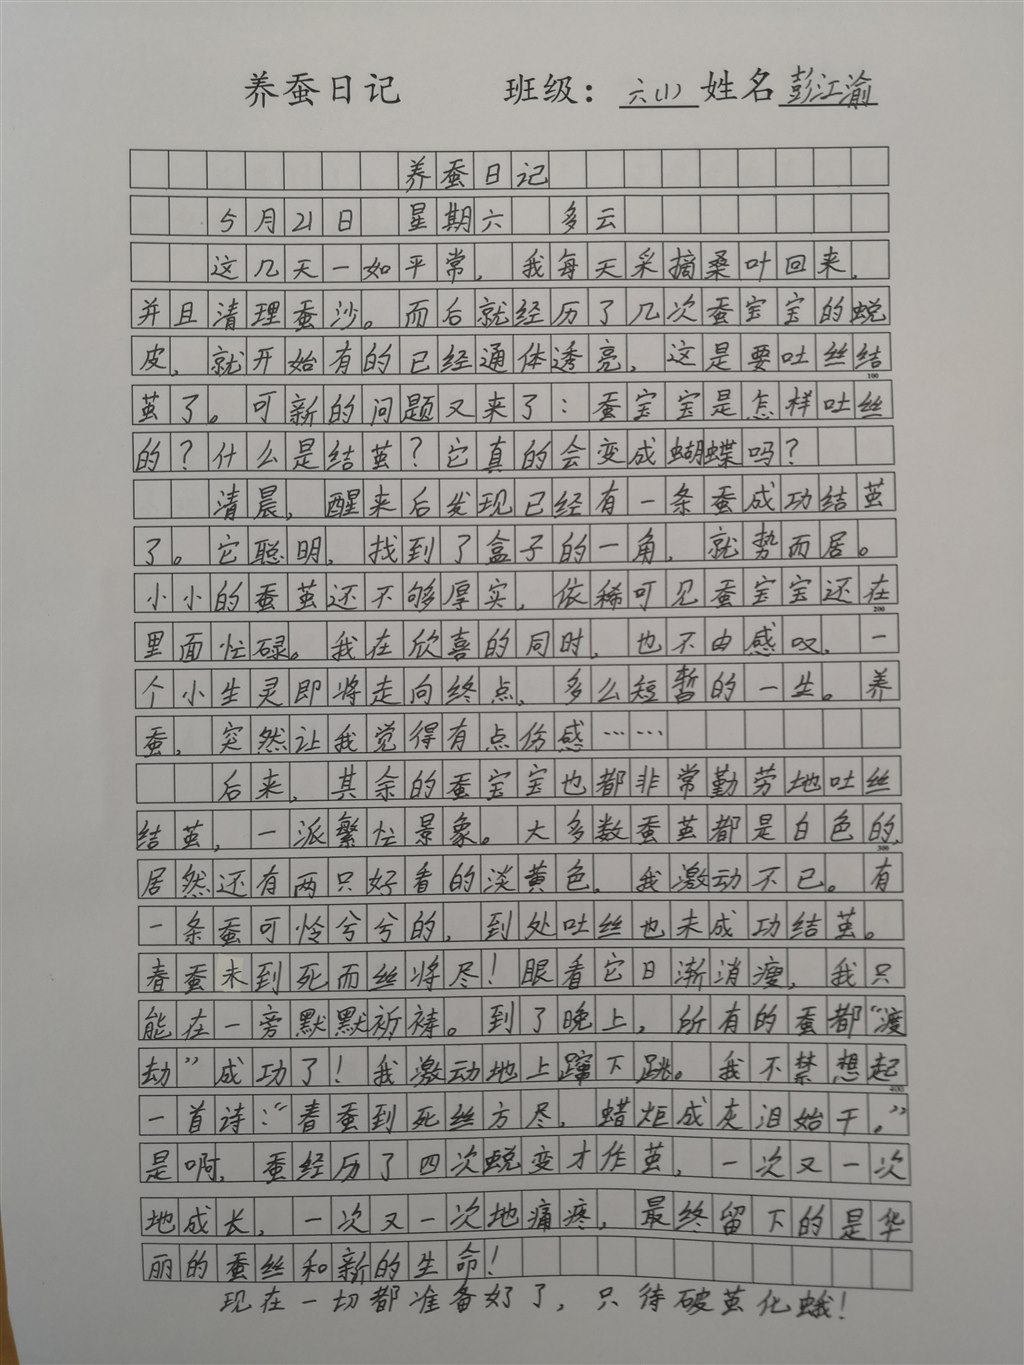 养蚕日记 班级：六(1) 姓名彭江渝
养蚕日记
5月21日 星期六 多云
这几天一如平常，我每天采摘桑叶回来，
并且清理蚕沙。而后就经历了几次蚕宝宝的蜕
皮，就开始有的已经通体透亮，这是要吐丝结
100
茧了。可新的问题又来了：蚕宝宝是怎样吐丝
的？什么是结茧？它真的会变成蝴蝶吗？
清晨，醒来后发现已经有一条蚕成功结茧
了。它聪明，找到了盒子的一角，就势而居。
小小的蚕茧还不够厚实，依稀可见蚕宝宝还在
200
里面忙碌。我在欣喜的同时，也不由感叹，一
个小生灵即将走向终点，多么短暂的一生。养
蚕，突然让我觉得有点伤感……
后来，其余的蚕宝宝也都非常勤劳地吐丝
结茧，一派繁忙景象。大多数蚕茧都是白色的，
300
居然还有两只好看的淡黄色，我激动不已。有
一条蚕可怜兮兮的，到处吐丝也未成功结茧。
春蚕未到死而丝将尽！眼看它日渐消瘦，我只
能在一旁默默祈祷。到了晚上，所有的蚕都“渡
劫”成功了！我激动地上蹿下跳。我不禁想起
400
一首诗：“春蚕到死丝方尽，蜡炬成灰泪始干。”
是啊，蚕经历了四次蜕变才作茧，一次又一次
地成长，一次又一次地痛疼，最终留下的是华
丽的蚕丝和新的生命！
现在一切都准备好了，只待破茧化蛾！